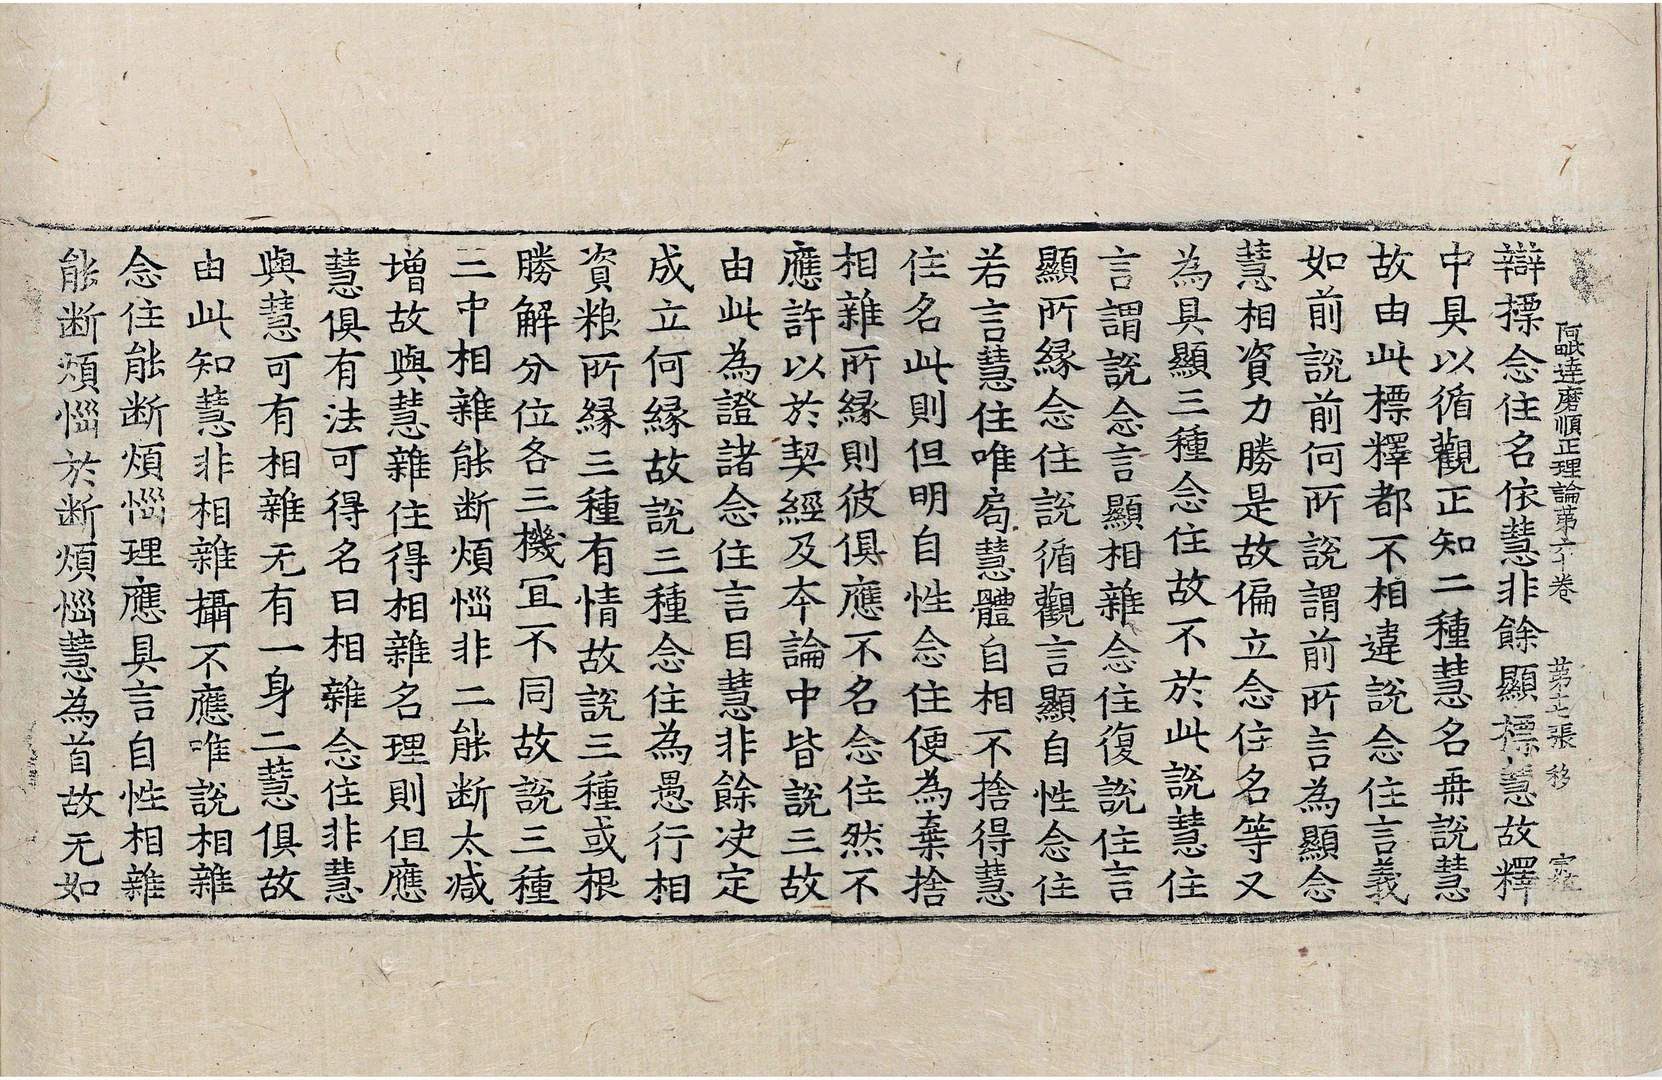 阿毗達磨順正理論第六十卷 第七張 移
辯摽念住名依慧非餘顯摽慧故釋
中具以循觀正知二種慧名冊說慧
故由此標釋都不相違說念住言義
如前說前何所說謂前所言為顯念
慧相資力勝是故偏立念住名等又
為具顯三種念住故不於此說慧住
言謂說念言顯相雜念住復說住言
顯所緣念住說循觀言顯自性念住
若言慧住唯局慧體自相不捨得慧
住名此則但明自性念住便為棄捨
相雜所緣則彼俱應不名念住然不
應許以於契經及夲論中皆說三故
由此為證諸念住言目慧非餘决定
成立何緣故說三種念住為愚行相
資粮所緣三種有情故說三種或根
勝解分位各三機冝不同故說三種
三中相雜能断煩惱非二能断太减
增故與慧雜住得相雜名理則但應
慧俱有法可得名曰相雜念住非慧
與慧可有相雜无有一身二慧俱故
由此知慧非相雜攝不應唯說相雜
念住能断煩惱理應具言自性相雜
能断煩惱於断煩惱慧為首故无如